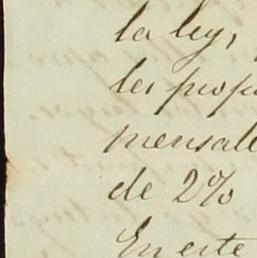 la ley,
les prop
mensale
de 2%
En este